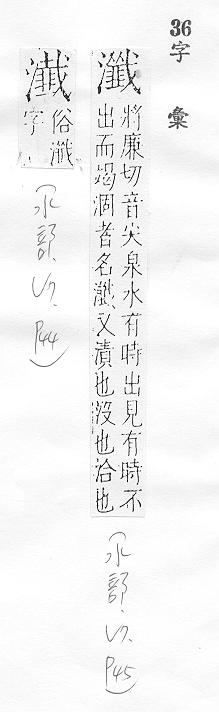 36字彙
瀸
將廉切音尖泉水有時出見有時不
出而竭涸者名瀸又漬也沒也洽也
水部.
P45
瀐
俗瀸
字
水部.
P44